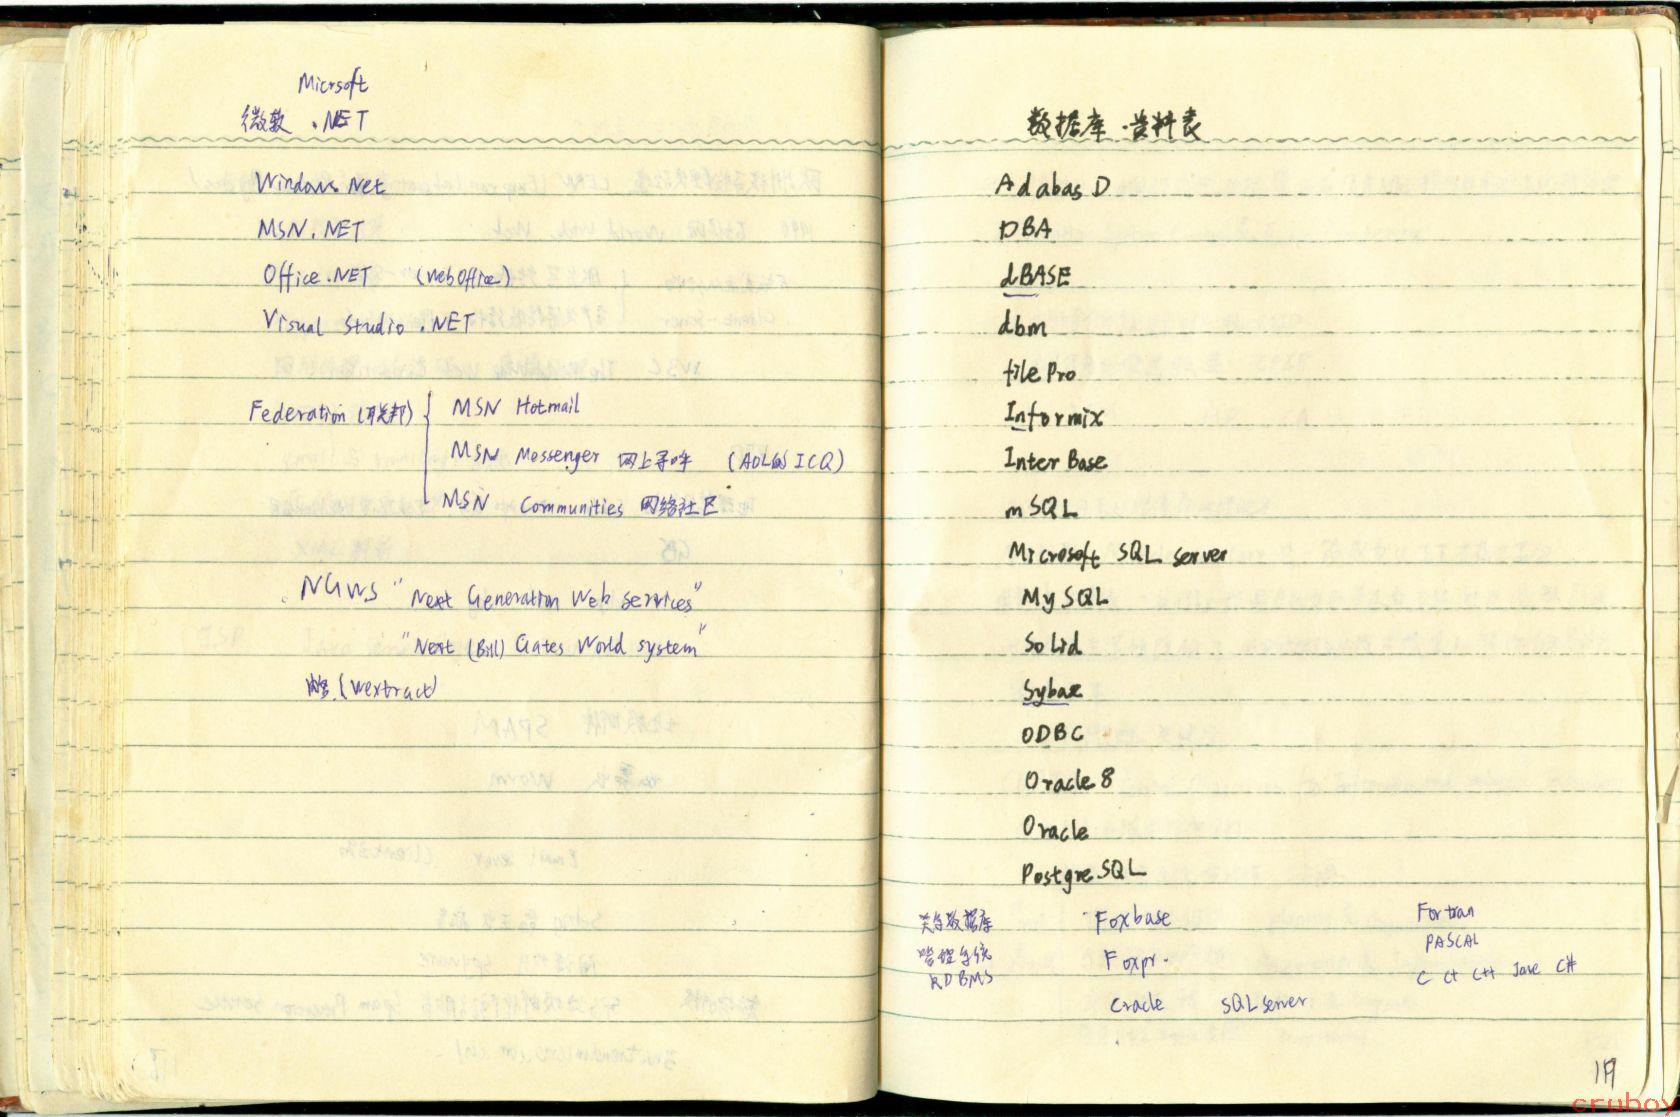 Micrsoft
微软 .NET
Windows Net
MSN.NET
Office.NET (WebOffice)
Visual Studio .NET
Federation (联邦) { MSN Hotmail
MSN Messenger 网上寻呼 (AOL的ICQ)
MSN Communities 网络社区
NGWS "Next Generation Web Services"
"Next (Bill) Gates World system"
(Wextract)
数据库·资料表
Adabas D
DBA
dBASE
dbm
filePro
Informix
InterBase
mSQL
Microsoft SQL Server
MySQL
Solid
Sybase
ODBC
Oracle 8
Oracle
PostgreSQL
关系数据库 Foxbase Fortran
管理系统 Foxpr. PASCAL
RDBMS C C+ C++ Java C#
Oracle SQL Server
119
cruboy